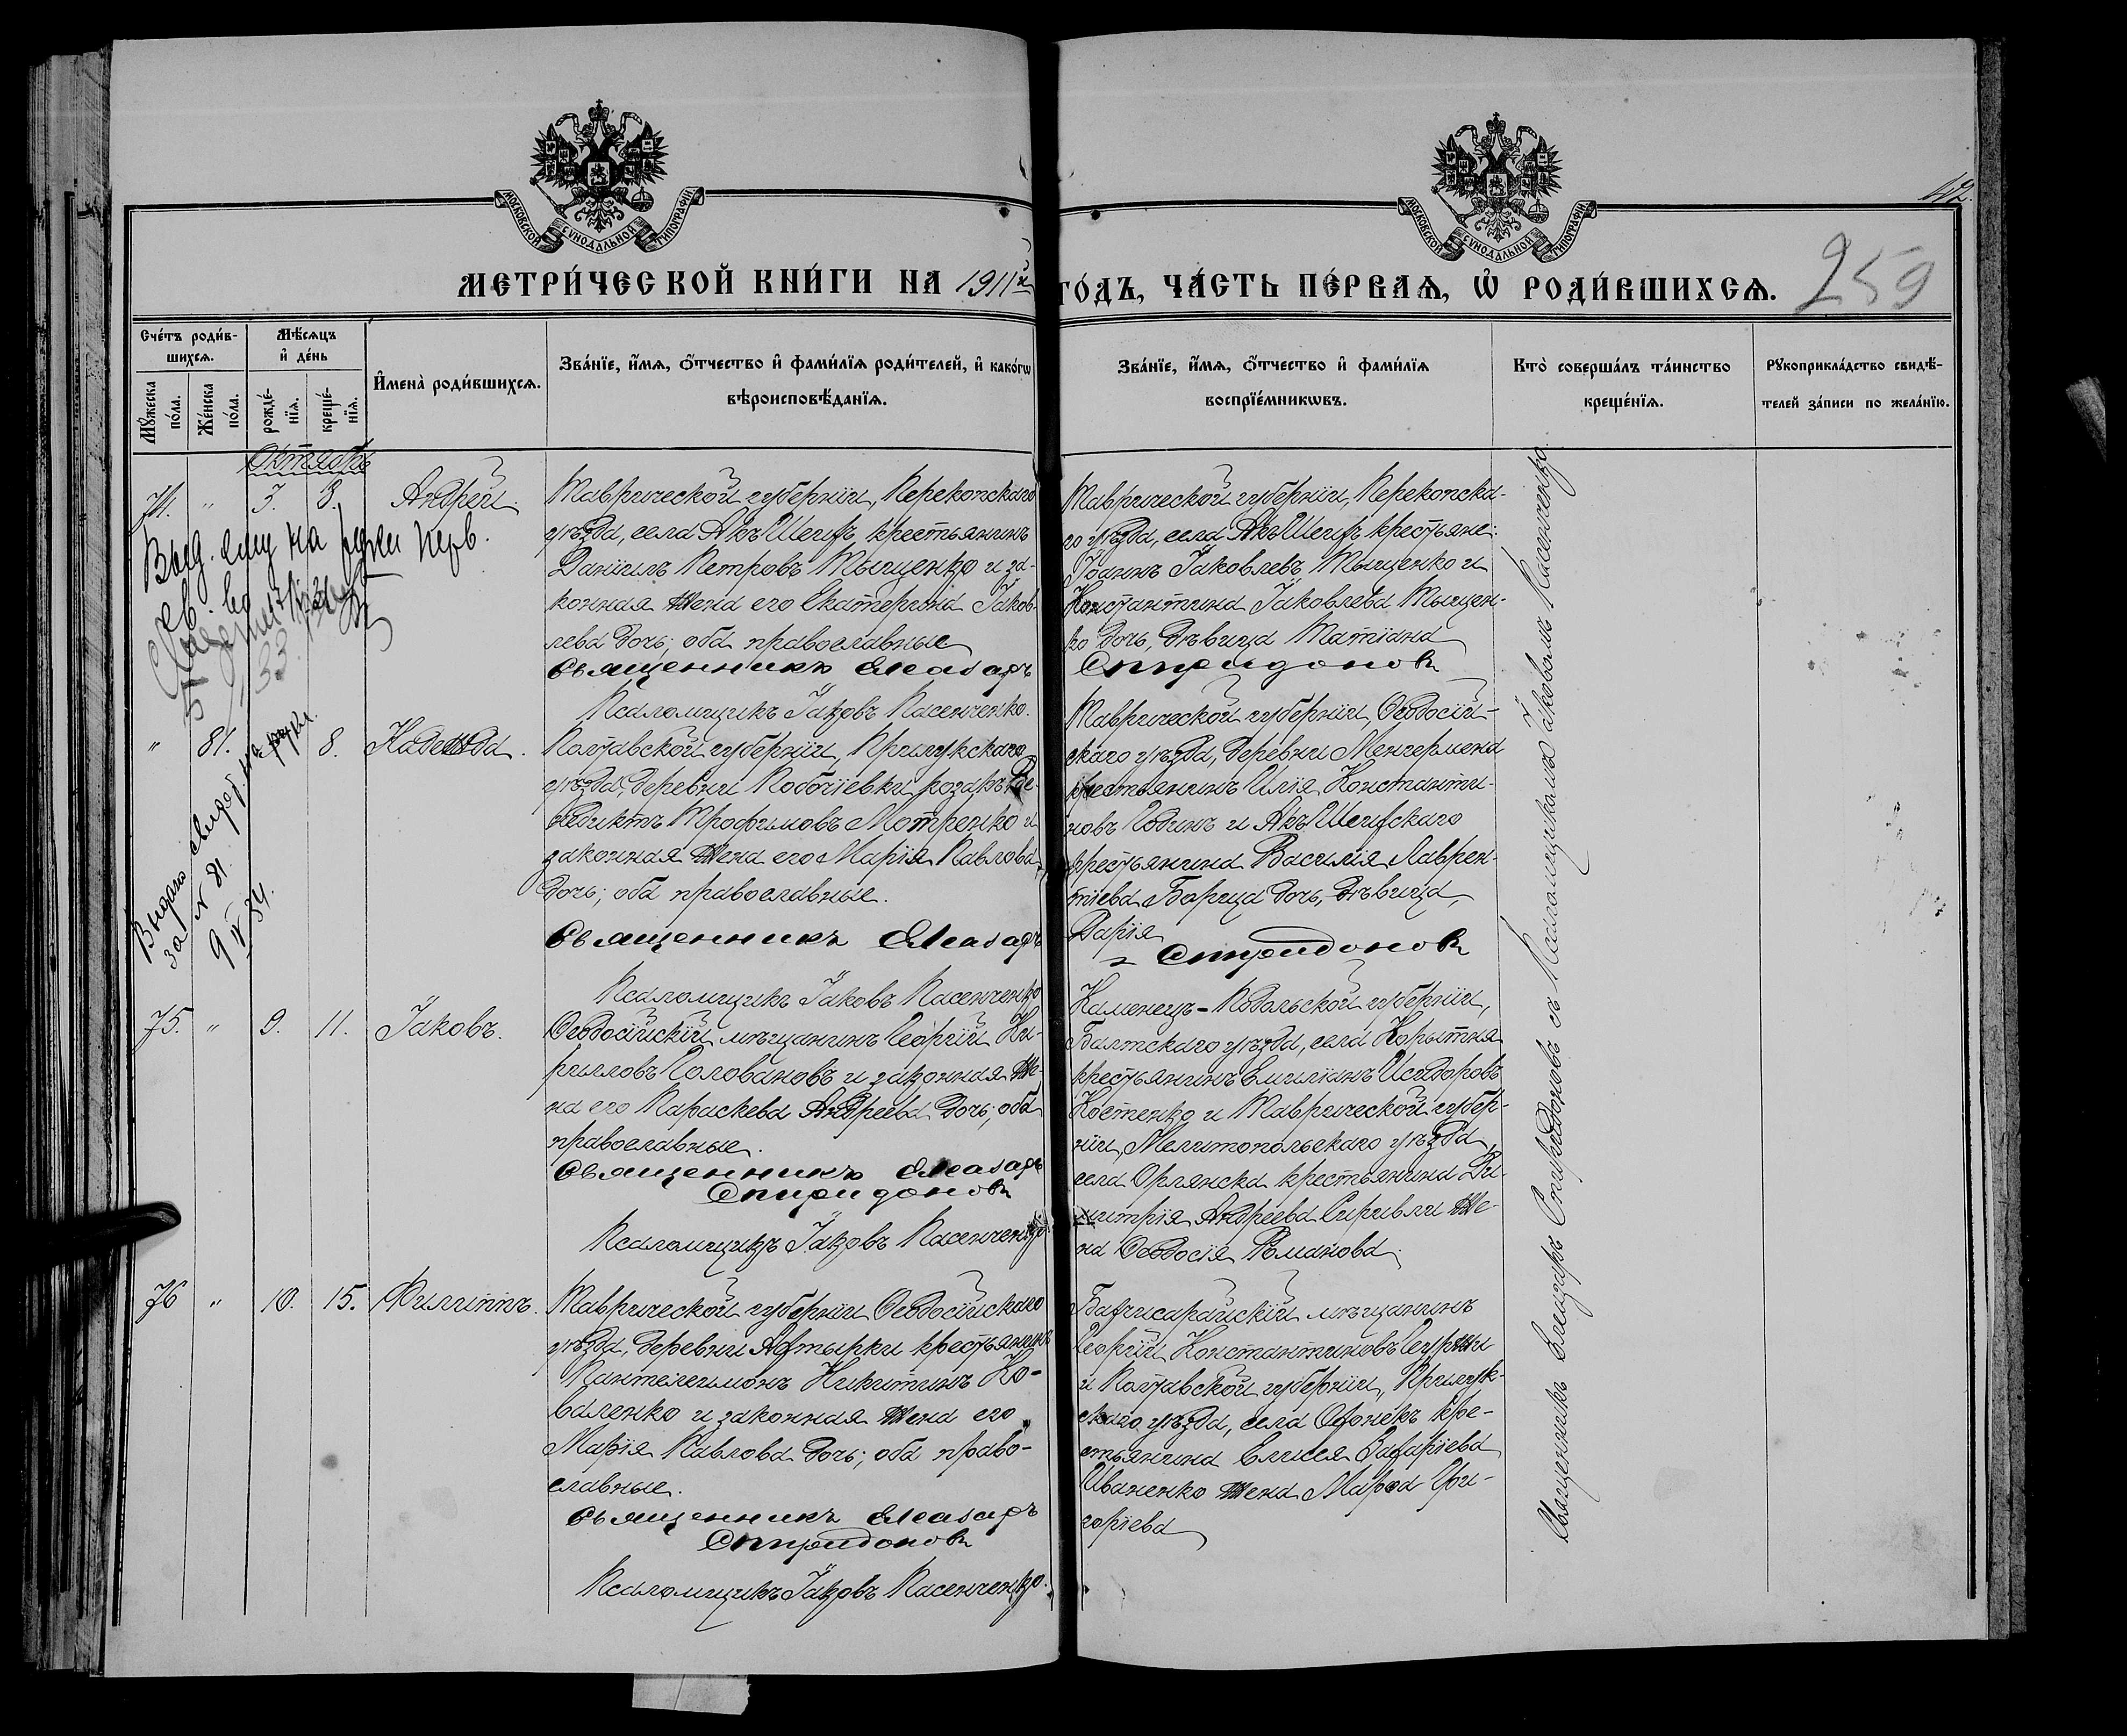 МОСКОВСКОЙ СУНОДАЛЬНОЙ ТИПОГРАФІИ
МОСКОВСКОЙ СУНОДАЛЬНОЙ ТИПОГРАФІИ
42.
МЕТРИ́ЧЕСКОЙ КНИ́ГИ НА 1911й
ГО́ДЪ, ЧА́СТЬ ПЕ́РВАѦ, Ѡ҆ РОДИ́ВШИХСѦ.
259
Сче́тъ роди́в-
шихсѧ.
Мѣ́сѧцъ
и҆ де́нь
Мꙋ́жеска
по́ла.
Же́нска
по́ла.
рожде́-
нїѧ.
креще́-
нїѧ.
И҆мена̀ роди́вшихсѧ.
Зва́нїе, и҆́мѧ, ѻ҆́тчество и҆ фами́лїѧ роди́телей, и҆ како́гѡ
вѣроисповѣ́данїѧ.
Зва́нїе, и҆́мѧ, ѻ҆́тчество и҆ фами́лїѧ
воспрїе́мникѡвъ.
Кто̀ соверша́лъ та́инство
креще́нїѧ.
Рꙋкоприкла́дство свидѣ́-
телей за́писи по жела́нїю.
Октябрь
74. " 3. 8. Андрей
Таврической губерніи, Перекопскаго
уѣзда, села Акъ Шеихъ, крестьянинъ
Даніилъ Петровъ Тыщенко и за-
конная жена его Екатерина Іаков-
лева дочь; оба православные
Священникъ Елеазаръ
Спиридоновъ
Псаломщикъ Іаковъ Пасенченко.
Таврической губерніи, Перекопска-
го уѣзда, села Акъ Шеихъ крестьяне:
Іоаннъ Іаковлевъ Тыщенко и
Константина Іаковлева Тыщен-
ко дочь, дѣвица Татіана
Выд. ему на руки перв.
" 81. 8. Надежда.
Полтавской губерніи, Прилукскаго
уѣзда, деревни Побочіевки козакъ Ве-
недиктъ Трофимовъ Мотренко и
законная жена его Марія Павлова
дочь; оба православные.
Священникъ Елеазаръ
Спиридоновъ
Псаломщикъ Іаковъ Пасенченко
Таврической губерніи, Ѳеодосій-
скаго уѣзда, деревни Менгермена
крестьянинъ Илія Константи-
новъ Годинъ и Акъ Шеихскаго
крестьянина Василія Лаврен-
тіева Борща дочь, дѣвица,
Дарія
Выдано свидет. на руки
за N 81.
9 IV 34.
75. " 9. 11. Іаковъ.
Ѳеодосійскій мѣщанинъ Георгій Ки-
рилловъ Головановъ и законная же-
на его Параскева Андреева дочь; оба
православные.
Священникъ Елеазаръ
Спиридоновъ
Псаломщикъ Іаковъ Пасенченко.
Каменецъ-Подольской губерніи,
Балтскаго уѣзда, села Корытна
крестьянинъ Емиліанъ Исидоровъ
Костенко и Таврической губер-
ніи, Мелитопольскаго уѣзда,
села Орлянска крестьянина Ди-
митрія Андреева Сиривли же-
на Ѳеодосія Романова.
76 " 10. 15. Филиппъ.
Таврической губерніи Ѳеодосійскаго
уѣзда, деревни Ахтырки крестьянинъ
Пантелеимонъ Никитинъ Ко-
валенко и законная жена его
Марія Павлова дочь; оба право-
славные.
Священникъ Елеазаръ
Спиридоновъ
Псаломщикъ Іаковъ Пасенченко.
Бахчисарайскій мѣщанинъ
Георгій Константиновъ
и Полтавской губерніи, Прилук-
скаго уѣзда, села кре-
стьянина Елисея Захаріева
Иваненко жена Марѳа Гри-
горіева
Священникъ Елеазаръ Спиридоновъ съ Псаломщикомъ Іаковомъ Пасенченко.